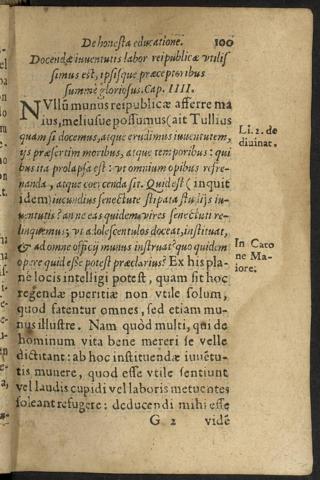 De honesta educatione. 100
Docendæ iuuentutis labor reipublicæ vtilis
simus est, ipsisque præceptoribus
summè gloriosus. Cap. IIII.
NVllū munus reipublicæ afferre ma
ius, meliusue possumus (ait Tullius
quam si docemus, atque erudimus iuuentutem,
ijs præsertim moribus, atque temporibus: qui
bus ita prolapsa est: vt omnium opibus refre-
nanda, atque coercenda sit. Quid est (inquit
idem) iucundius senectute stipata studijs iu-
uentutis? an ne eas quidem vires senectuti re-
linquemus; vt adolescentulos doceat, instituat,
& ad omne officij munus instruat? quo quidem
opere quid esse potest præclarius? Ex his pla-
nè locis intelligi potest, quam sit hoc
regendæ pueritiæ non vtile solum,
quod fatentur omnes, sed etiam mu-
nus illustre. Nam quòd multi, qui de
hominum vita bene mereri se velle
dictitant: ab hoc instituendæ iuuētu-
tis munere, quod esse vtile sentiunt
vel laudis cupidi vel laboris metuentes
soleant refugere: deducendi mihi esse
G 2 vidē
Li. 2. de
diuinat.
In Cato
ne Ma-
iore: